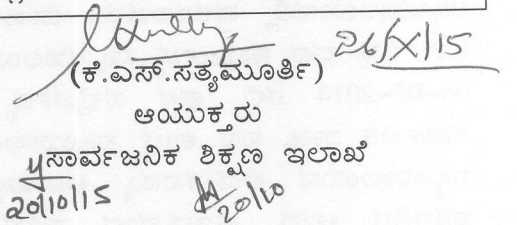 26/X/15
(ಕೆ.ಎಸ್.ಸತ್ಯಮೂರ್ತಿ)
ಆಯುಕ್ತರು
ಸಾರ್ವಜನಿಕ ಶಿಕ್ಷಣ ಇಲಾಖೆ
20/10/15
20/10